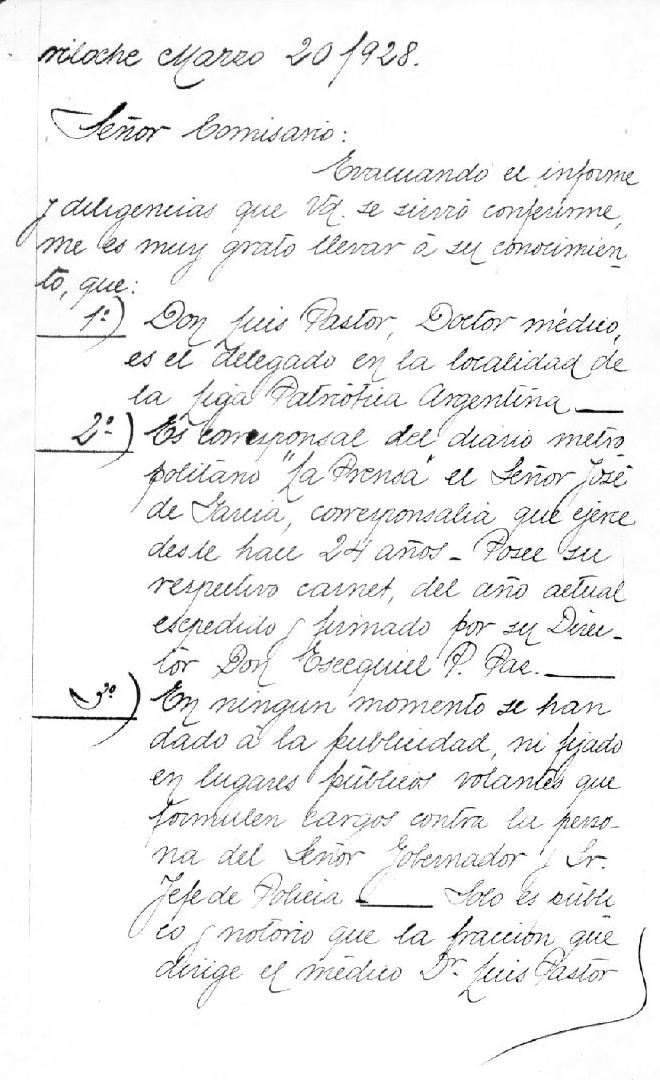 riloche Marzo 20/928.
Señor Comisario:
Evacuando el informe
y diligencias que Vd. se sirvió conferirme,
me es muy grato llevar á su conocimien-
to, que:
1º) Don Luis Pastor, Doctor médico,
es el delegado en la localidad de
la Liga Patriótica Argentina
2º) Es corresponsal del diario metro
politano "La Prensa" el Señor José
de García, corresponsalia que ejerce
desde hace 24 años - Posee su
respectivo carnet, del año actual
espedido y firmado por su Direc-
tor Don Esequiel P. Paz.
3º) En ningun momento se han
dado á la publicidad, ni fijado
en lugares públicos volantes que
formulen cargos contra la perso-
na del Señor Gobernador y Sr.
Jefe de Policia Solo es públi
co y notorio que la fracción que
dirige el médico Dr. Luis Pastor